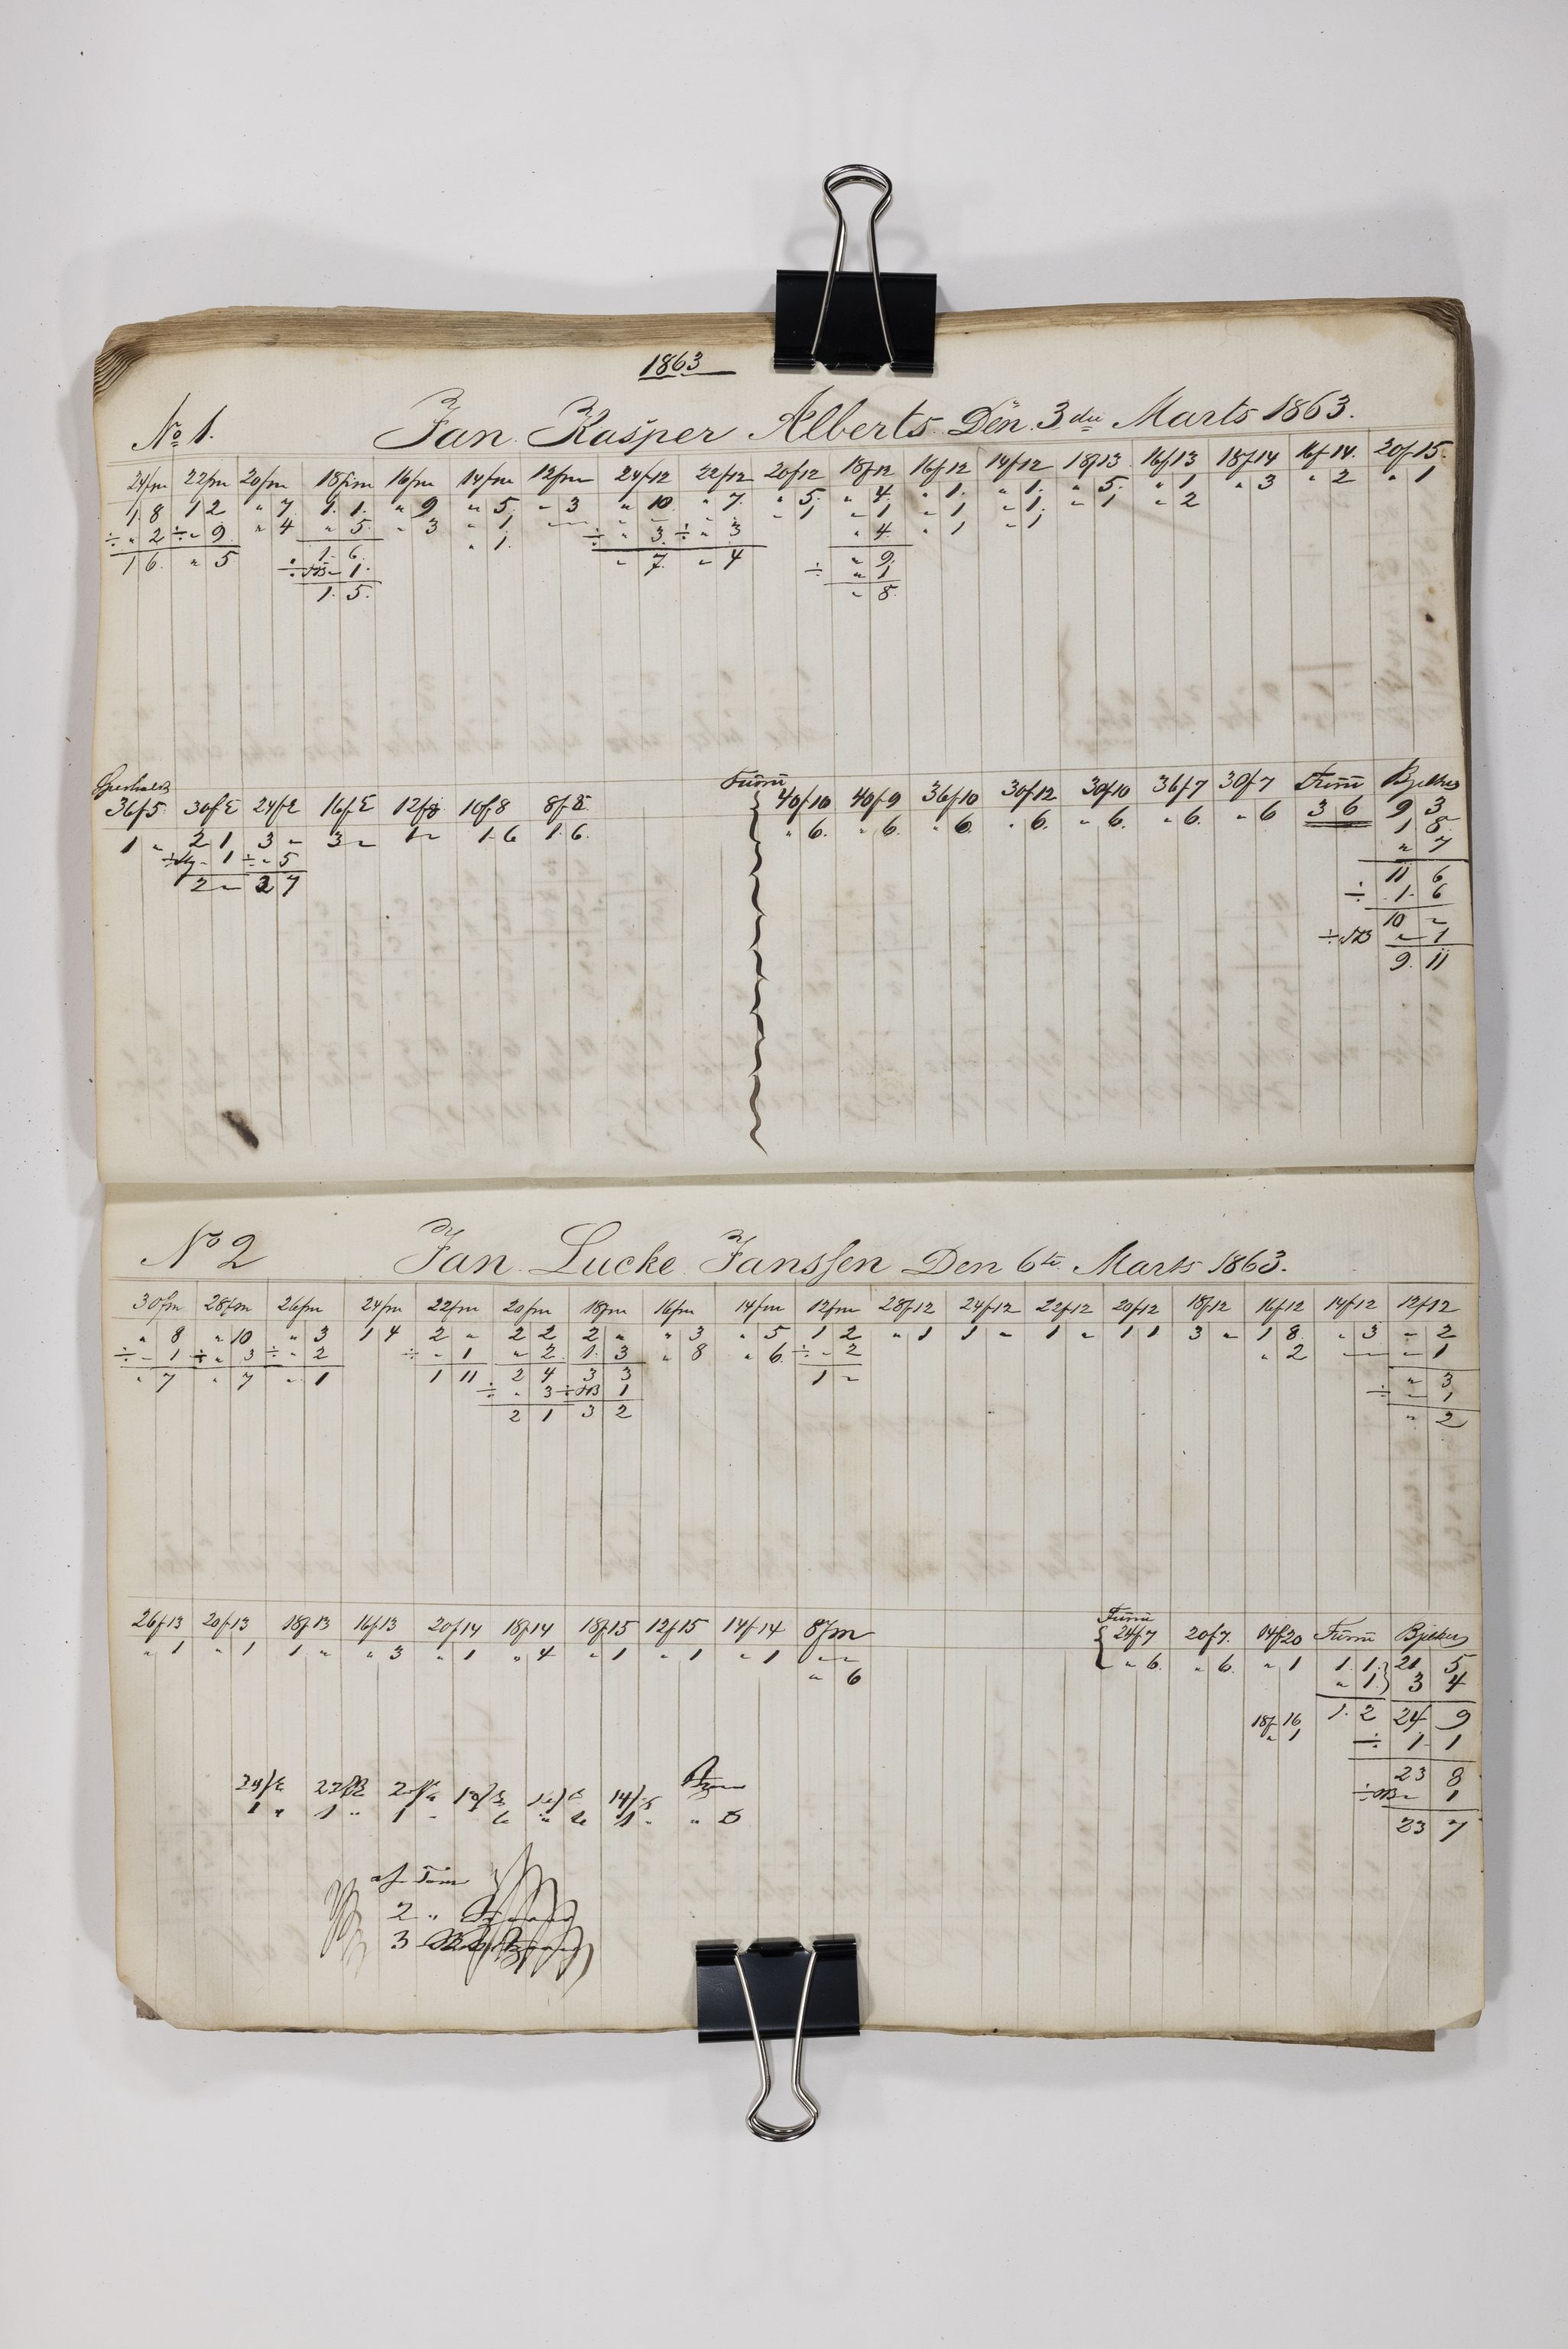 1863
No 1. Jan Kasper Alberts Den 3die Marts 1863.
24fm 22fm 20fm 18fm 16fm 14fm 12fm 24f12 22f12 20f12 18f12 16f12 14f12 18f13 16f13 18f14 16f14. 20f15.
1 8 1 2 " 7 1. 1. " 9 " 5 " 3 " 10 " 7. " 5. " 4. " 1. " 1. " 5. " 1 " 3 " 2 " 1
÷ " 2 ÷ " 9 " 4 " 5. " 3 " 1 ÷ " 3. ÷ " 3 " 1 " 1 " 1 " 1 " 1 " 2
1 6. " 5 1. 6. " 1. " 7. " 4 " 4. " 1 " 1
÷ " 1. " 9.
1. 5. ÷ " 1
" 8.
36f5. 30f8 24f8 16f8 12f8 10f8 8f8 Furu 40f10 40f9 36f10 30f12 30f10 36f7 30f7 Furu Bjelker
1 " 2 1 3 " 3 " 1 " 1. 6 1. 6. " 6. " 6. " 6. " 6. " 6. " 6. " 6 3 6 9 3
÷ 1 ÷ " 5 1 8
2 " 2 7 " 7
11 6
÷ 1. 6
10 "
÷ " 1
9. 11
No 2 Jan Lucke Janssen Den 6te Marts 1863.
30fm 28fm 26fm 24fm 22fm 20fm 18fm 16fm 14fm 12fm 28f12 24f12 22f12 20f12 18f12 16f12 14f12 12f12
" 8 " 10 " 3 1 4 2 " 2 2 2 " " 3 " 5 1 2 " 1 1 " 1 " 1 1 3 " 1 8. " 3 " 2
÷ " 1 ÷ " 3 ÷ " 2 ÷ " 1 " 2. 1. 3 " 8 " 6. ÷ " 2 " 2 " 1
" 7 " 7 " 1 1 11 2 4 3 3 1 " " 3
÷ " 3 ÷ 1 ÷ " 1
2 1 3 2 " 2
26f13 20f13 18f13 16f13 20f14 18f14 18f15 12f15 14f14 8fm Furu 24f7 20f7. 14f20 Furu Bjelker
" 1 " 1 1 " " 3 " 1 " 4 " 1 " 1 " 1 " 6. " 6. " 1 1. 1. 21 5
" 6 " 1. 3 4
18f16 1. 2 24 9
" 1 ÷ 1 1
23 8
÷ " 1
23 7
1 " 1 " 1 "
2 "
3